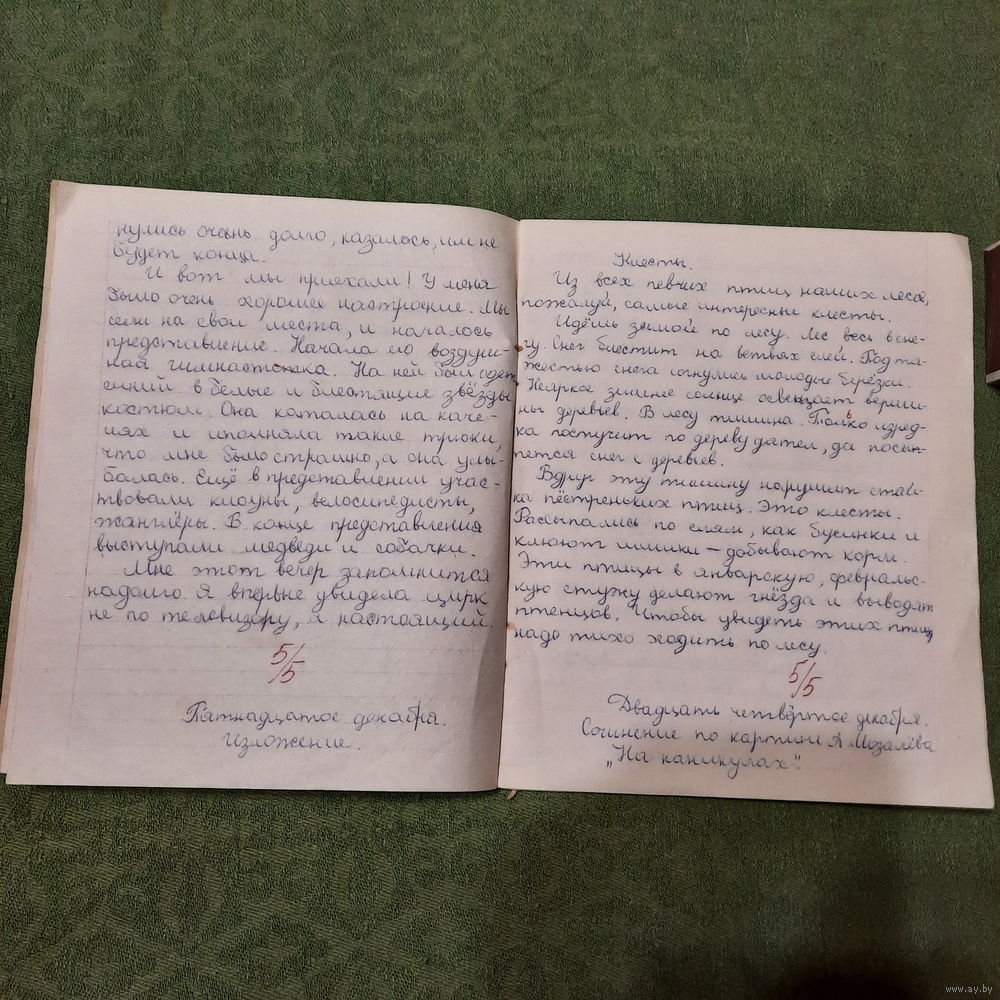 нулись очень долго, казалось, им не
будет конца.
И вот мы приехали! У меня
было очень хорошее настроение. Мы
сели на свои места, и началось
представление. Начала его воздуш-
ная гимнастка. На ней был одет
синий в белые и блестящие звёзды
костюм. Она каталась на каче-
лях и исполняла такие трюки,
что мне было страшно, а она улы-
балась. Ещё в представлении учас-
твовали клоуны, велосипедисты,
жанглёры. В конце представления
выступали медведи и собачки.
Мне этот вечер запомнится
надолго. Я впервые увидела цирк
не по телевизору, а настоящий.
5/5
Пятнадцатое декабря.
Изложение.
Клесты.
Из всех певчих птиц наших лесов,
пожалуй, самые интересные клесты.
Идёшь зимой по лесу. Лес весь в сне-
гу. Снег блестит на ветвях елей. Под тя-
жестью снега согнулись молодые берёзки.
Неяркое зимнее солнце освещает верши-
ны деревьев. В лесу тишина. Только изред-
ка постучит по дереву дятел, да посып-
пется снег с деревьев.
Вдруг эту тишину нарушит стай-
ка пёстреньких птиц. Это клесты.
Рассыпались по елям, как бусинки и
клюют шишки – добывают корм.
Эти птицы в январскую, февральс-
кую стужу делают гнёзда и выводят
птенцов. Чтобы увидеть этих птиц,
надо тихо ходить по лесу.
5/5
Двадцать четвёртое декабря.
Сочинение по картине А. Мозалёва
„На каникулах".
www.ay.by